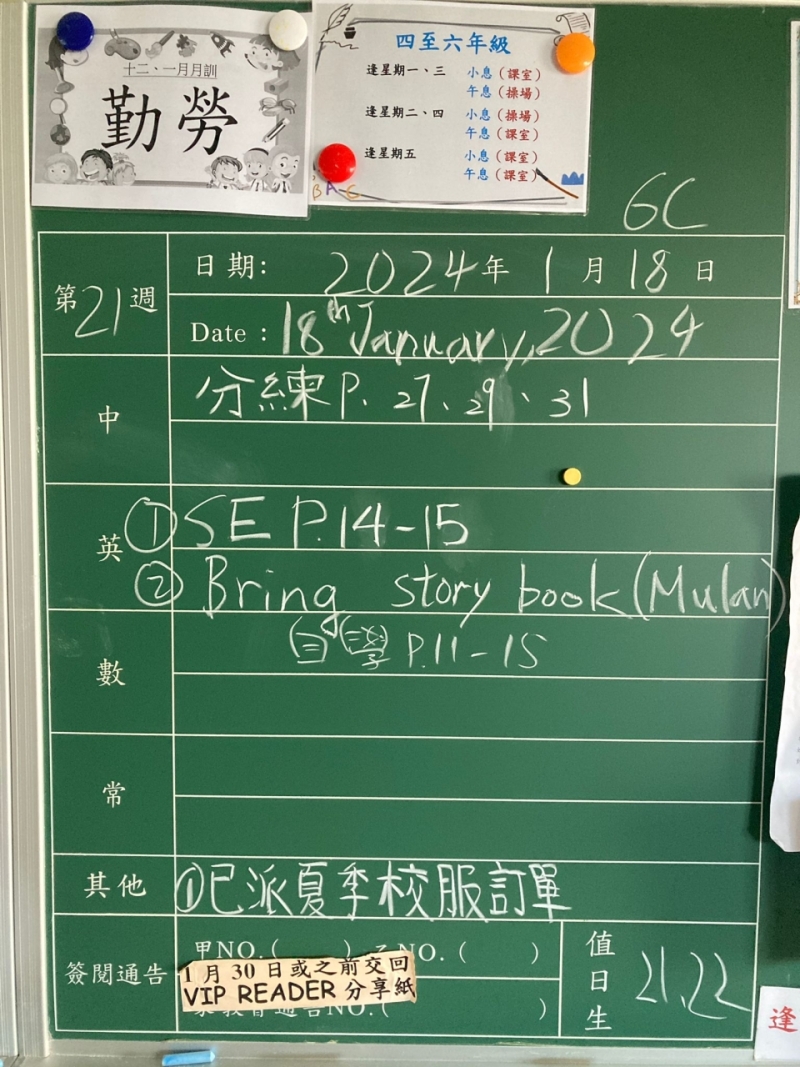 十二、一月月訓
勤勞
四至六年級
逢星期一、三 小息(課室)
午息(操場)
逢星期二、四 小息(操場)
午息(課室)
逢星期五 小息(課室)
午息(課室)
6C
第21週
日期: 2024年 1月18日
Date : 18th January, 2024
中
分練P. 27、29、31
英
①SE P.14-15
②Bring story book (Mulan)
數
P.11-15
常
其他
①已派夏季校服訂單
簽閱通告
甲NO.( ) NO.( )
1月30日或之前交回
VIP READER 分享紙
NO.( )
值日生
21,22
逢